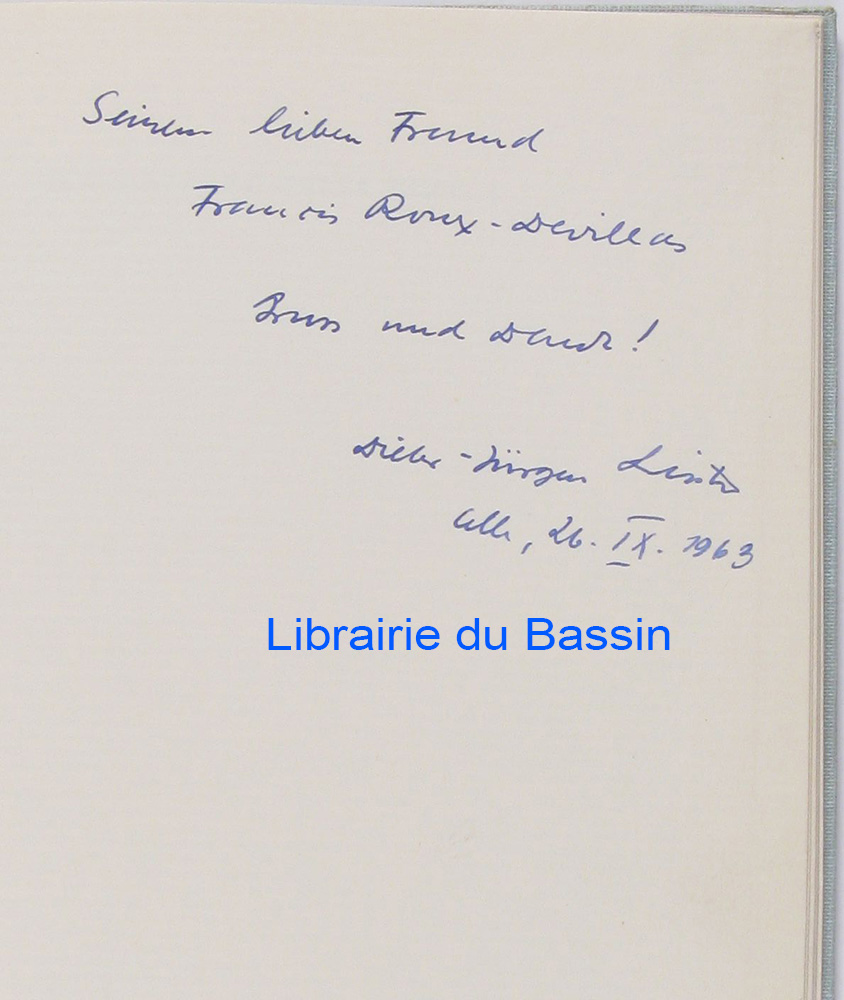 Seinem lieben Freund
Francis Roux-Devillas
Gruss und Dank!
Dieter-Jürgen Leister
Celle, 26. IX. 1963
Librairie du Bassin